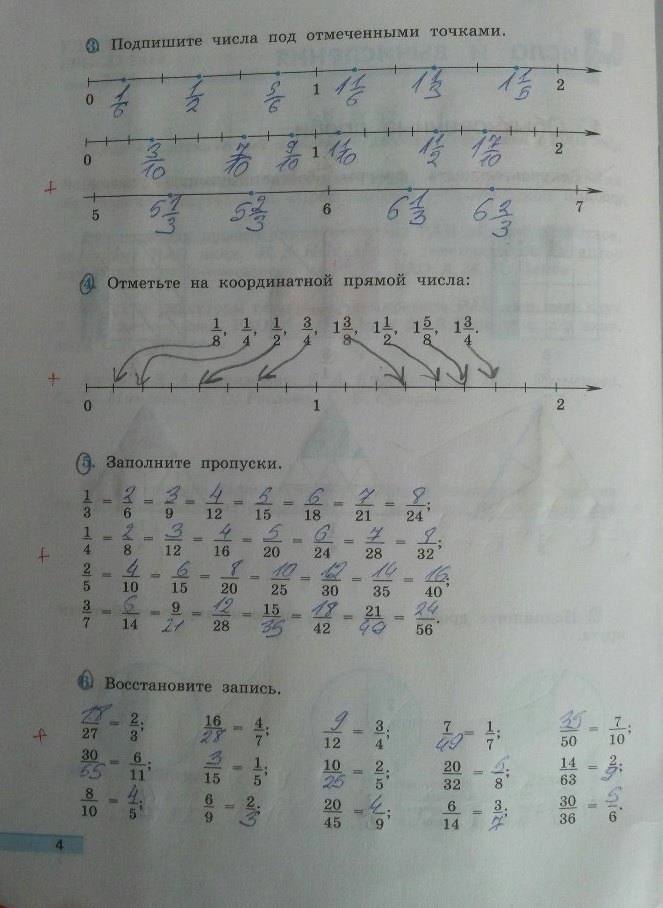 3. Подпишите числа под отмеченными точками.
0 1/6 1/2 5/6 1 1 1/6 1 1/3 1 1/5 2
0 3/10 7/10 9/10 1 1 1/10 1 1/2 1 7/10 2
+ 5 5 1/3 5 2/3 6 6 1/3 6 2/3 7
4. Отметьте на координатной прямой числа:
1/8, 1/4, 1/2, 3/4, 1 3/8, 1 1/2, 1 5/8, 1 3/4.
+ 0 1 2
5. Заполните пропуски.
1/3 = 2/6 = 3/9 = 4/12 = 5/15 = 6/18 = 7/21 = 8/24;
1/4 = 2/8 = 3/12 = 4/16 = 5/20 = 6/24 = 7/28 = 8/32;
+ 2/5 = 4/10 = 6/15 = 8/20 = 10/25 = 12/30 = 14/35 = 16/40;
3/7 = 6/14 = 9/21 = 12/28 = 15/35 = 18/42 = 21/49 = 24/56.
6. Восстановите запись.
+ 18/27 = 2/3; 16/28 = 4/7; 9/12 = 3/4; 7/49 = 1/7; 35/50 = 7/10;
30/55 = 6/11; 3/15 = 1/5; 10/25 = 2/5; 20/32 = 5/8; 14/63 = 2/9;
8/10 = 4/5; 6/9 = 2/3; 20/45 = 4/9; 6/14 = 3/7; 30/36 = 5/6.
4